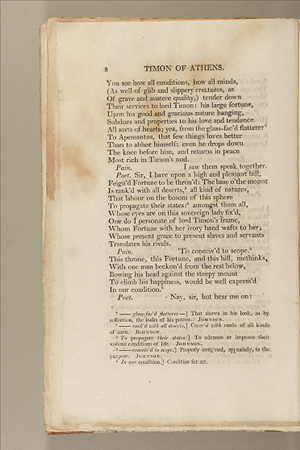 8 TIMON OF ATHENS.
You see how all conditions, how all minds,
(As well of glib and slippery creatures, as
Of grave and austere quality,) tender down
Their services to lord Timon: his large fortune,
Upon his good and gracious nature hanging,
Subdues and properties to his love and tendance
All sorts of hearts; yea, from the glass-fac'd flatterer
To Apemantus, that few things loves better
Than to abhor himself: even he drops down
The knee before him, and returns in peace
Most rich in Timon's nod.
Pain. I saw them speak together.
Poet. Sir, I have upon a high and pleasant hill,
Feign'd Fortune to be thron'd: The base o'the mount
Is rank'd with all deserts, all kind of natures,
That labour on the bosom of this sphere
To propagate their states: amongst them all,
Whose eyes are on this sovereign lady fix'd,
One do I personate of lord Timon's frame,
Whom Fortune with her ivory hand wafts to her;
Whose present grace to present slaves and servants
Translates his rivals.
Pain. 'Tis conceiv'd to scope.
This throne, this Fortune, and this hill, methinks,
With one man beckon'd from the rest below,
Bowing his head against the steepy mount
To climb his happiness, would be well express'd
In our condition.
Poet. Nay, sir, but hear me on:
— glass-fac'd flatterer—] That shows in his look, as by
reflection, the looks of his patron. JOHNSON.
— rank'd with all deserts,] Cover'd with ranks of all kinds
of men. JOHNSON.
To propagate their states:] To advance or improve their
various conditions of life. JOHNSON.
— conceiv'd to scope.] Properly imagined, appositely, to the
purpose. JOHNSON.
In our condition.] Condition for art.